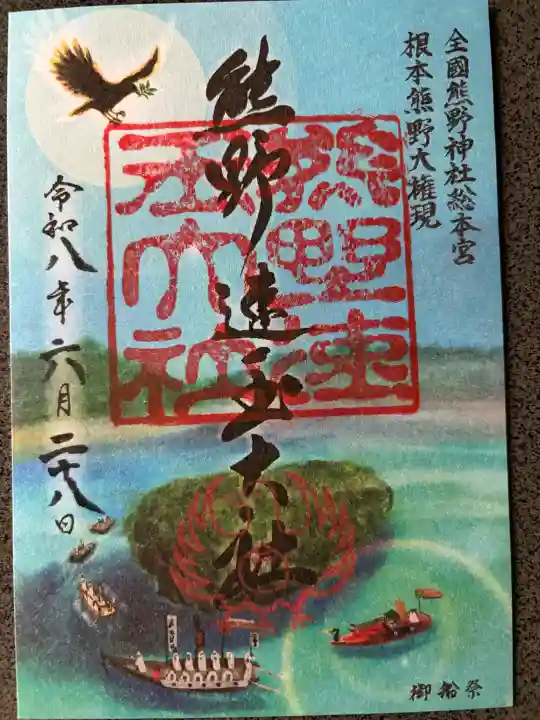 全國熊野神社総本宮
根本熊野大権現
熊野速玉大社
熊野速
玉大社
令和八年六月二十八日
御船祭